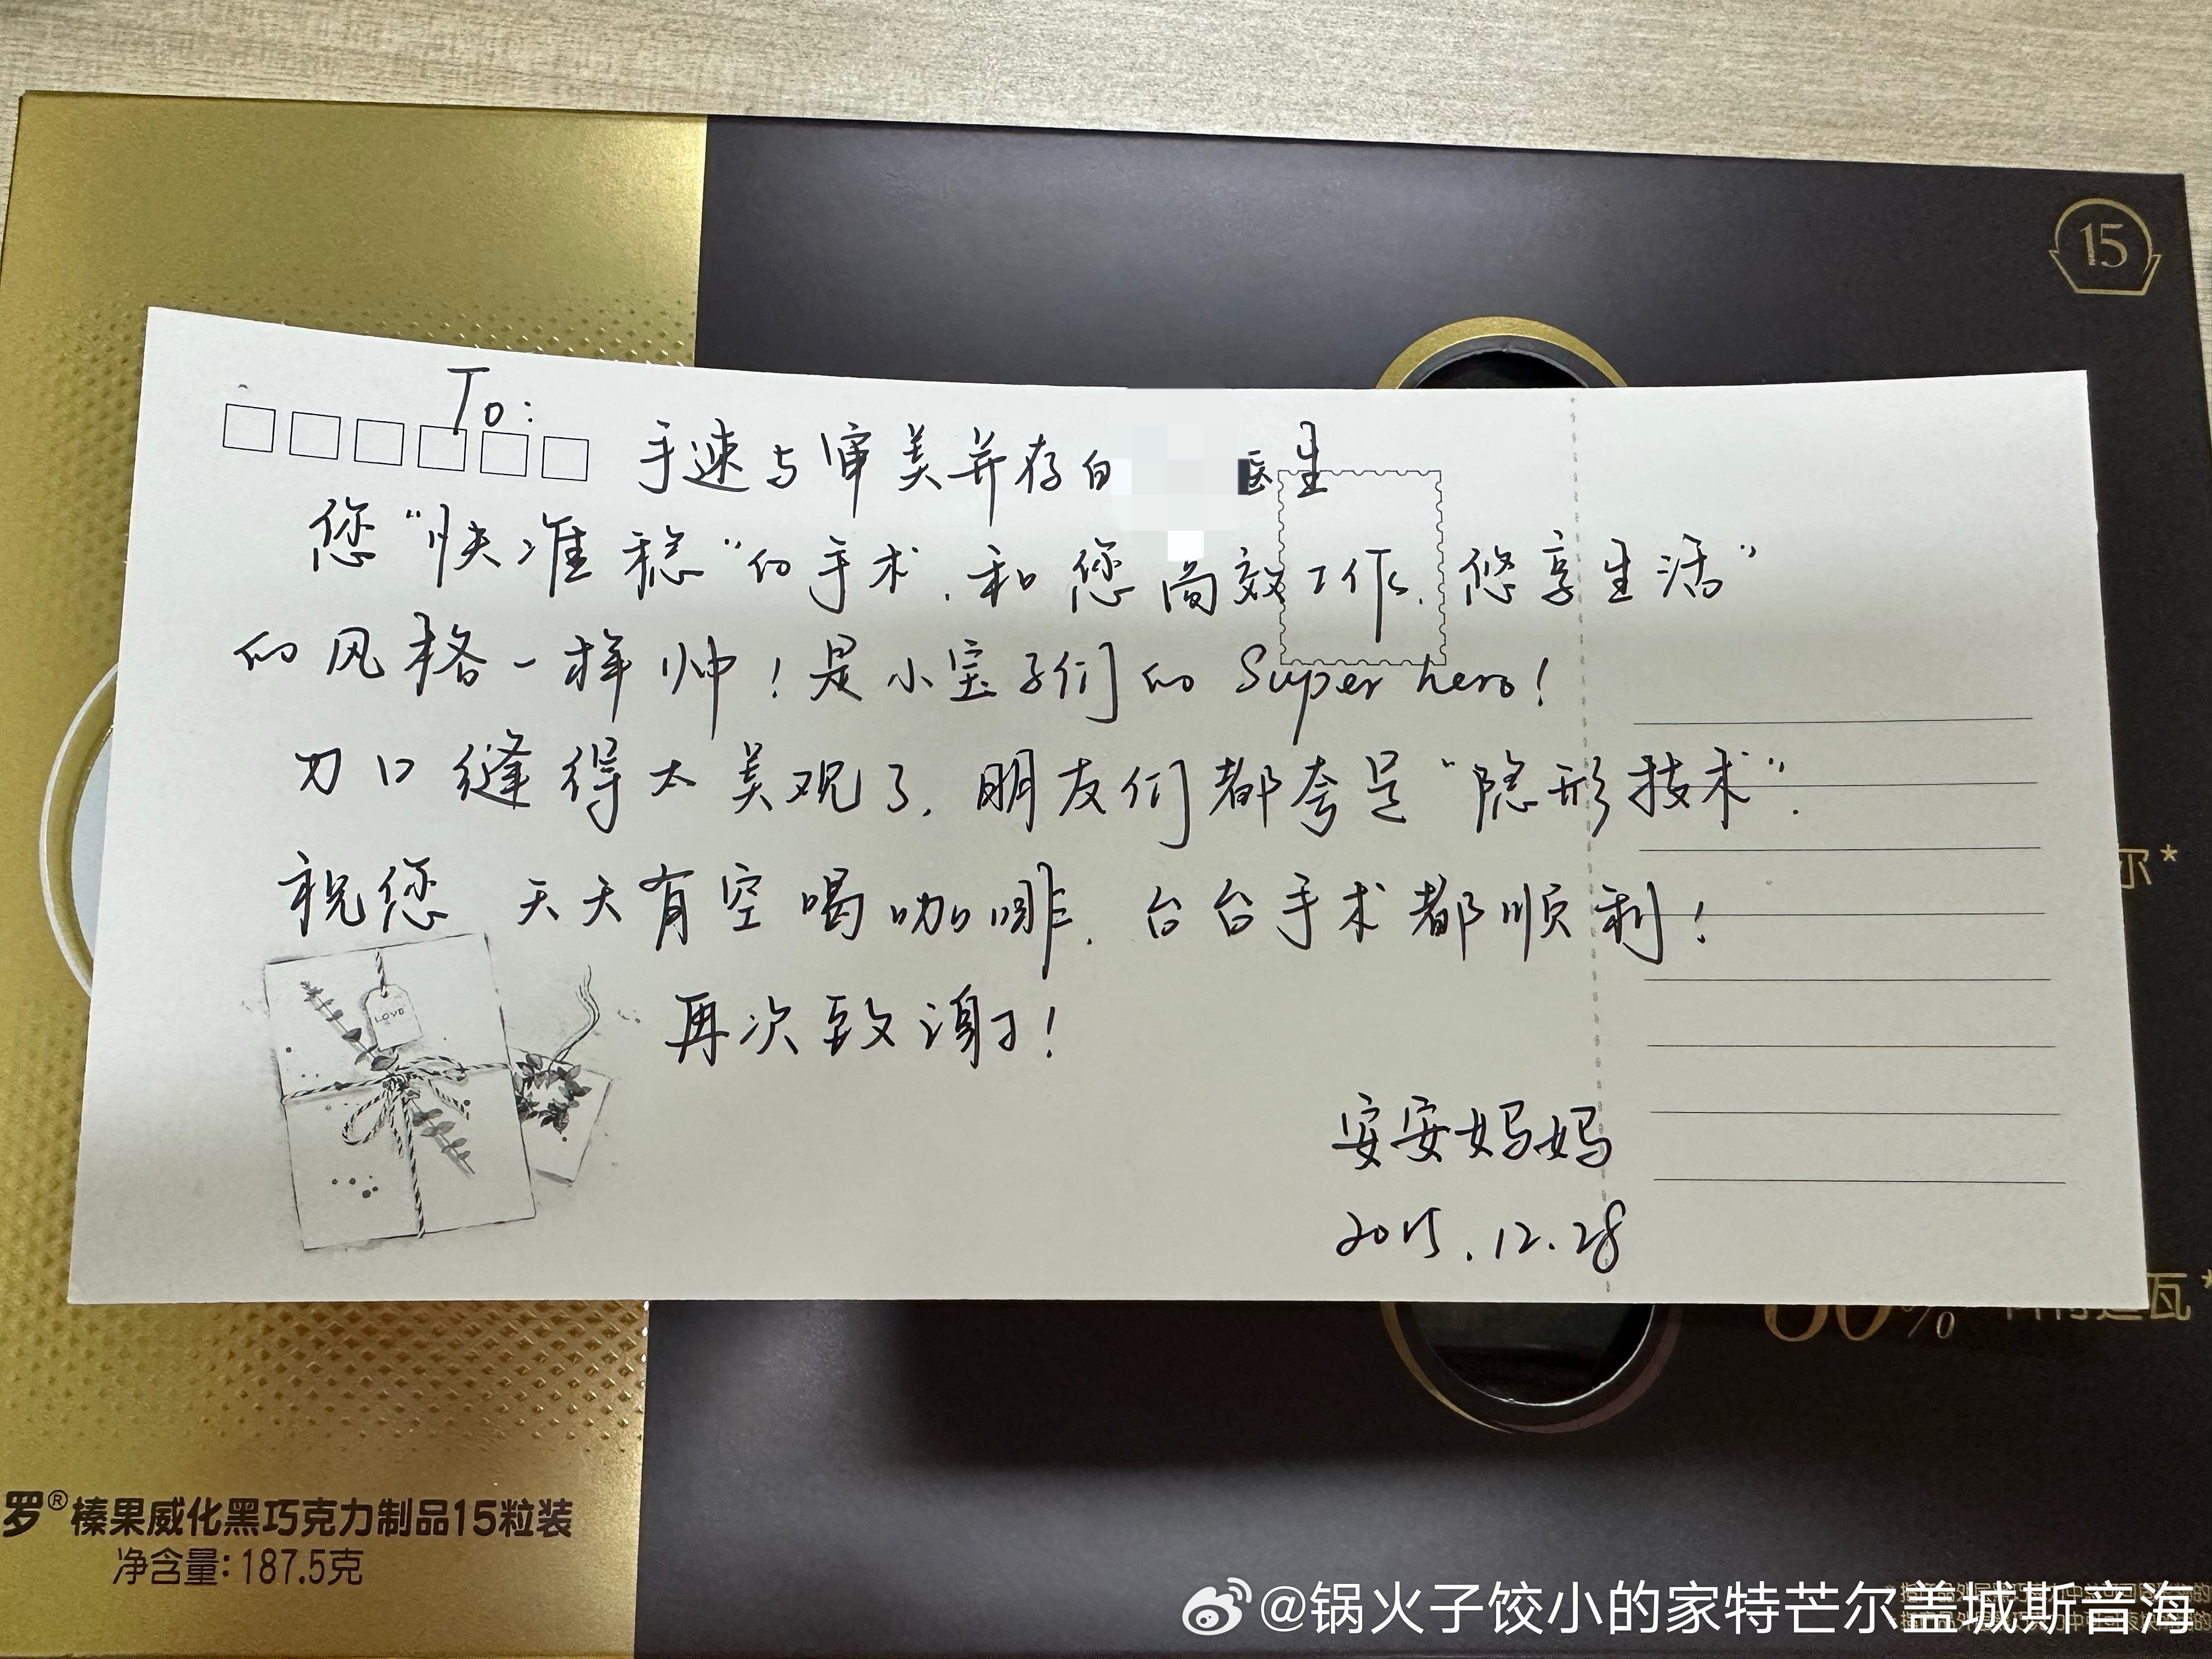 15
To:
手速与审美并存的 医生
您“快准稳”的手术,和您高效工作,悠享生活”
的风格一样帅!是小宝子们的 Super hero!
刀口缝得太美观了,朋友们都夸是“隐形技术”.
祝您 天天有空喝咖啡,台台手术都顺利!
LOVE
再次致谢!
安安妈妈
2025.12.28
尔*
瓦*
罗®榛果威化黑巧克力制品15粒装
净含量:187.5克
@锅火子饺小的家特芒尔盖城斯音海